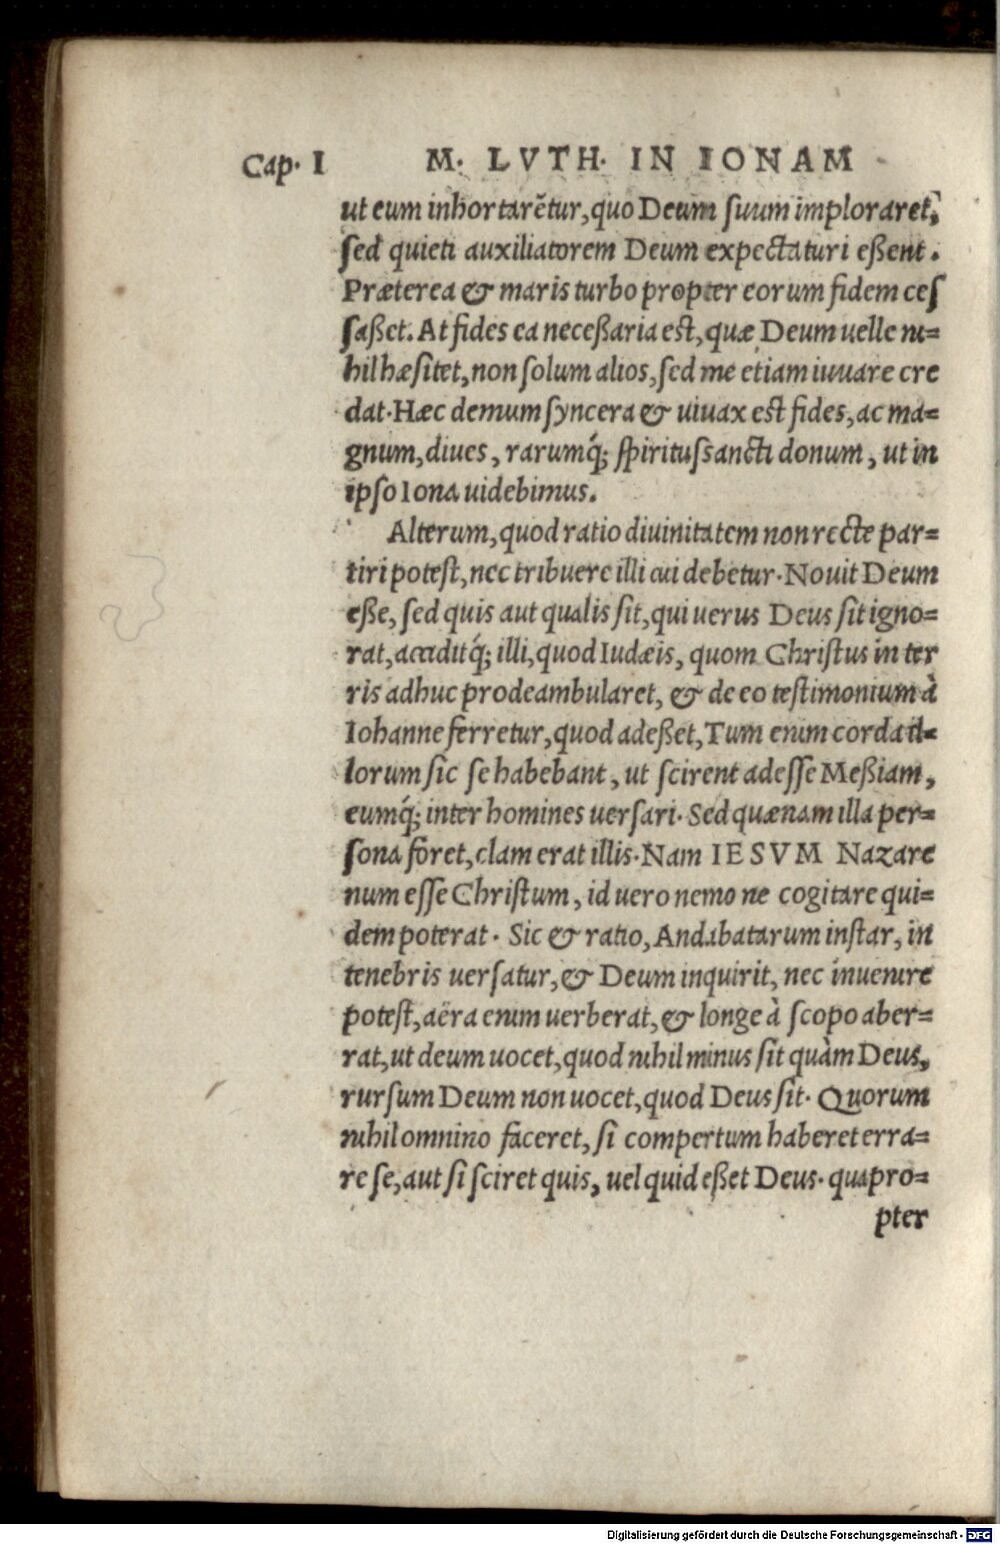 Cap. I M. LVTH. IN IONAM
ut eum inhortarẽtur, quo Deum ſuum imploraret,
ſed quieti auxiliatorem Deum expectaturi eßent.
Præterea & maris turbo propter eorum fidem ceſ
ſaßet. At fides ea neceßaria est, quæ Deum uelle ni=
hil hæſitet, non ſolum alios, ſed me etiam iuuare cre
dat. Hæc demum ſyncera & uiuax est fides, ac ma=
gnum, diues, rarumq́; ſpirituſſancti donum, ut in
ipſo Iona uidebimus.
Alterum, quod ratio diuinitatem non recte par=
tiri poteſt, nec tribuere illi cui debetur. Nouit Deum
eße, ſed quis aut qualis ſit, qui uerus Deus ſit igno=
rat, acciditq́; illi, quod Iudæis, quom Chriſtus in ter
ris adhuc prodeambularet, & de eo teſtimonium à
Iohanne ferretur, quod adeßet, Tum enim corda il=
lorum ſic ſe habebant, ut ſcirent adeſſe Meßiam,
eumq́; inter homines uerſari. Sed quænam illa per=
ſona foret, clam erat illis. Nam IESVM Nazare
num eſſe Chriſtum, id uero nemo ne cogitare qui=
dem poterat. Sic & ratio, Andabatarum inſtar, in
tenebris uerſatur, & Deum inquirit, nec inuenire
poteſt, aëra enim uerberat, & longe à ſcopo aber=
rat, ut deum uocet, quod nihil minus ſit quàm Deus,
rurſum Deum non uocet, quod Deus ſit. Quorum
nihil omnino faceret, ſi compertum haberet erra=
re ſe, aut ſi ſciret quis, uel quid eßet Deus. quapro=
pter
Digitalisierung gefördert durch die Deutsche Forschungsgemeinschaft - DFG